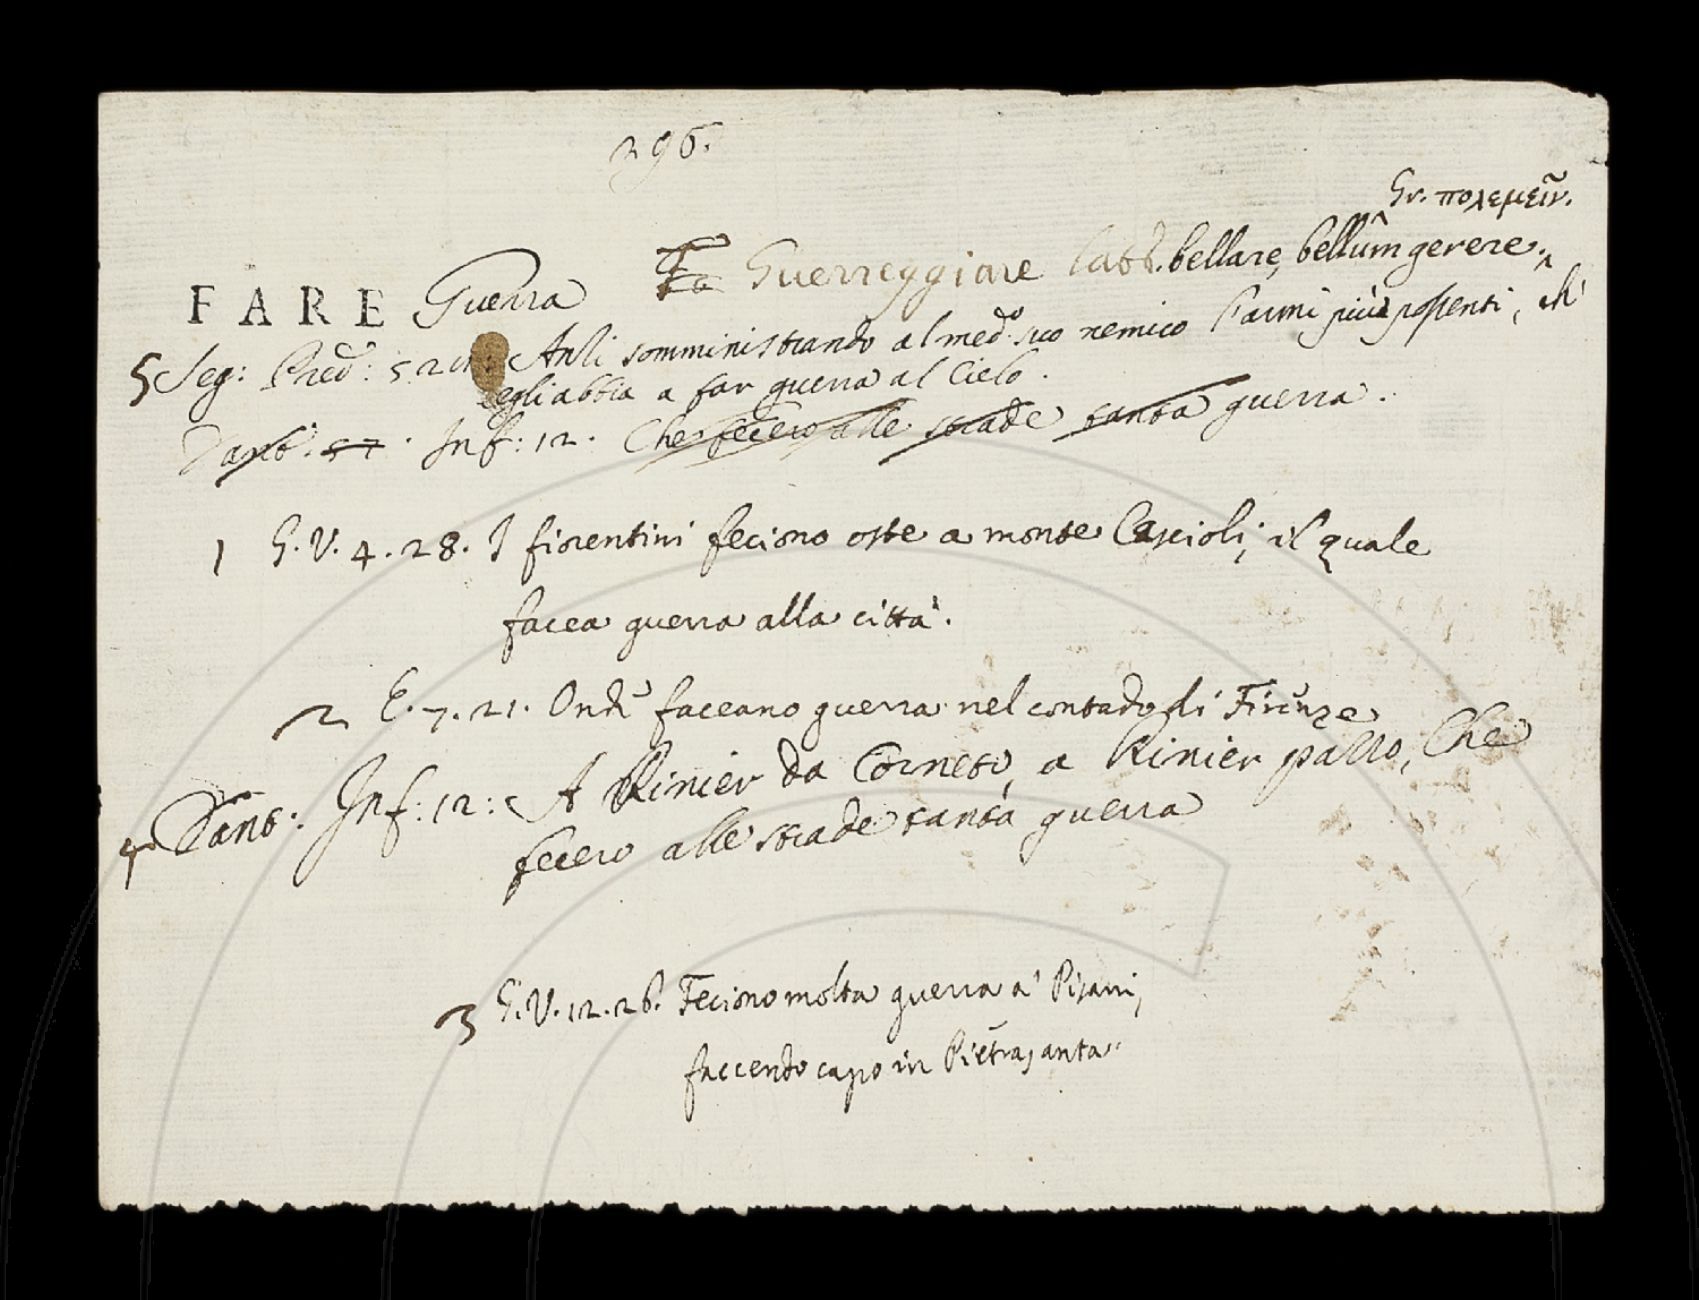 296.
Gr. πολεμεῖν.
FARE Guerra Guerreggiare latt. bellare, bellûm gerere.
5 Seg: Pred: 5. Anzi somministrando al med.o suo nemico l'armi più possenti, ch'
egli abbia a far guerra al Cielo.
Dant. 57. Inf: 12. Che fecero alle strade tanta guerra.
1 G. V. 4. 28. I fiorentini feciono oste a monte Cascioli, il quale
facea guerra alla città.
2 E. 7. 21. Onde faceano guerra nel contado di Firenze
4 Dant: Inf: 12: A Rinier da Corneto, a Rinier pazzo, Che
fecero alle strade tanta guerra
3 G. V. 12. 26. Feciono molta guerra a' Pisani,
faccendo capo in Pietrasanta